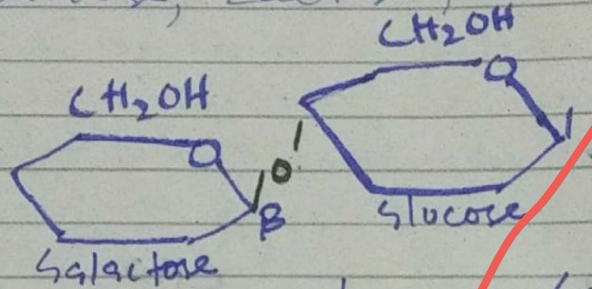 CH2OH
CH2OH
O
O
O
β
Glucose
Galactose